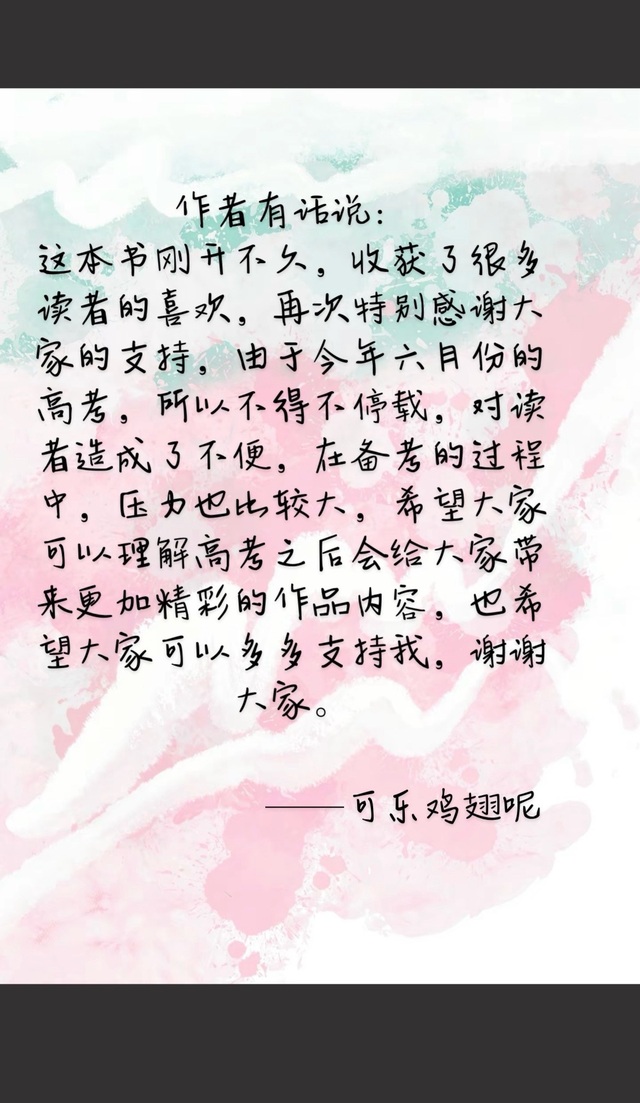 作者有话说:
这本书刚开不久,收获了很多
读者的喜欢,再次特别感谢大
家的支持,由于今年六月份的
高考,所以不得不停载,对读
者造成了不便,在备考的过程
中,压力也比较大,希望大家
可以理解高考之后会给大家带
来更加精彩的作品内容,也希
望大家可以多多支持我,谢谢
大家。
——可乐鸡翅呢